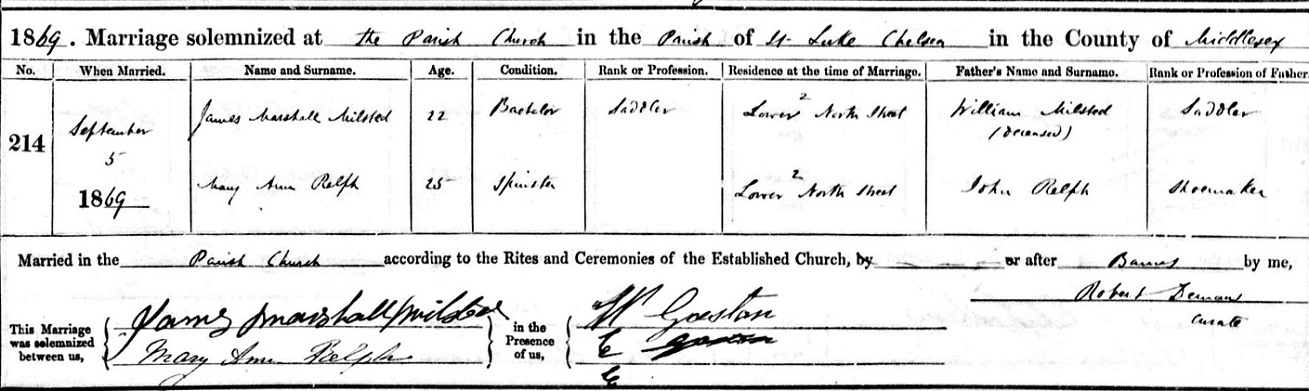 1869. Marriage solemnized at the Parish Church in the Parish of St Luke Chelsea in the County of Middlesex
No. When Married. Name and Surname. Age. Condition. Rank or Profession. Residence at the time of Marriage. Father's Name and Surname. Rank or Profession of Father.
214 September 5 1869
James Marshall Milsted 22 Bachelor Saddler 2 Lower North Street William Milsted (deceased) Saddler
Mary Ann Relph 25 Spinster 2 Lower North Street John Relph Shoemaker
Married in the Parish Church according to the Rites and Ceremonies of the Established Church, by or after Banns by me,
Robert
Curate
This Marriage was solemnized between us,
James Marshall Milsted
Mary Ann Relph
in the Presence of us,
W Goestan
E
E